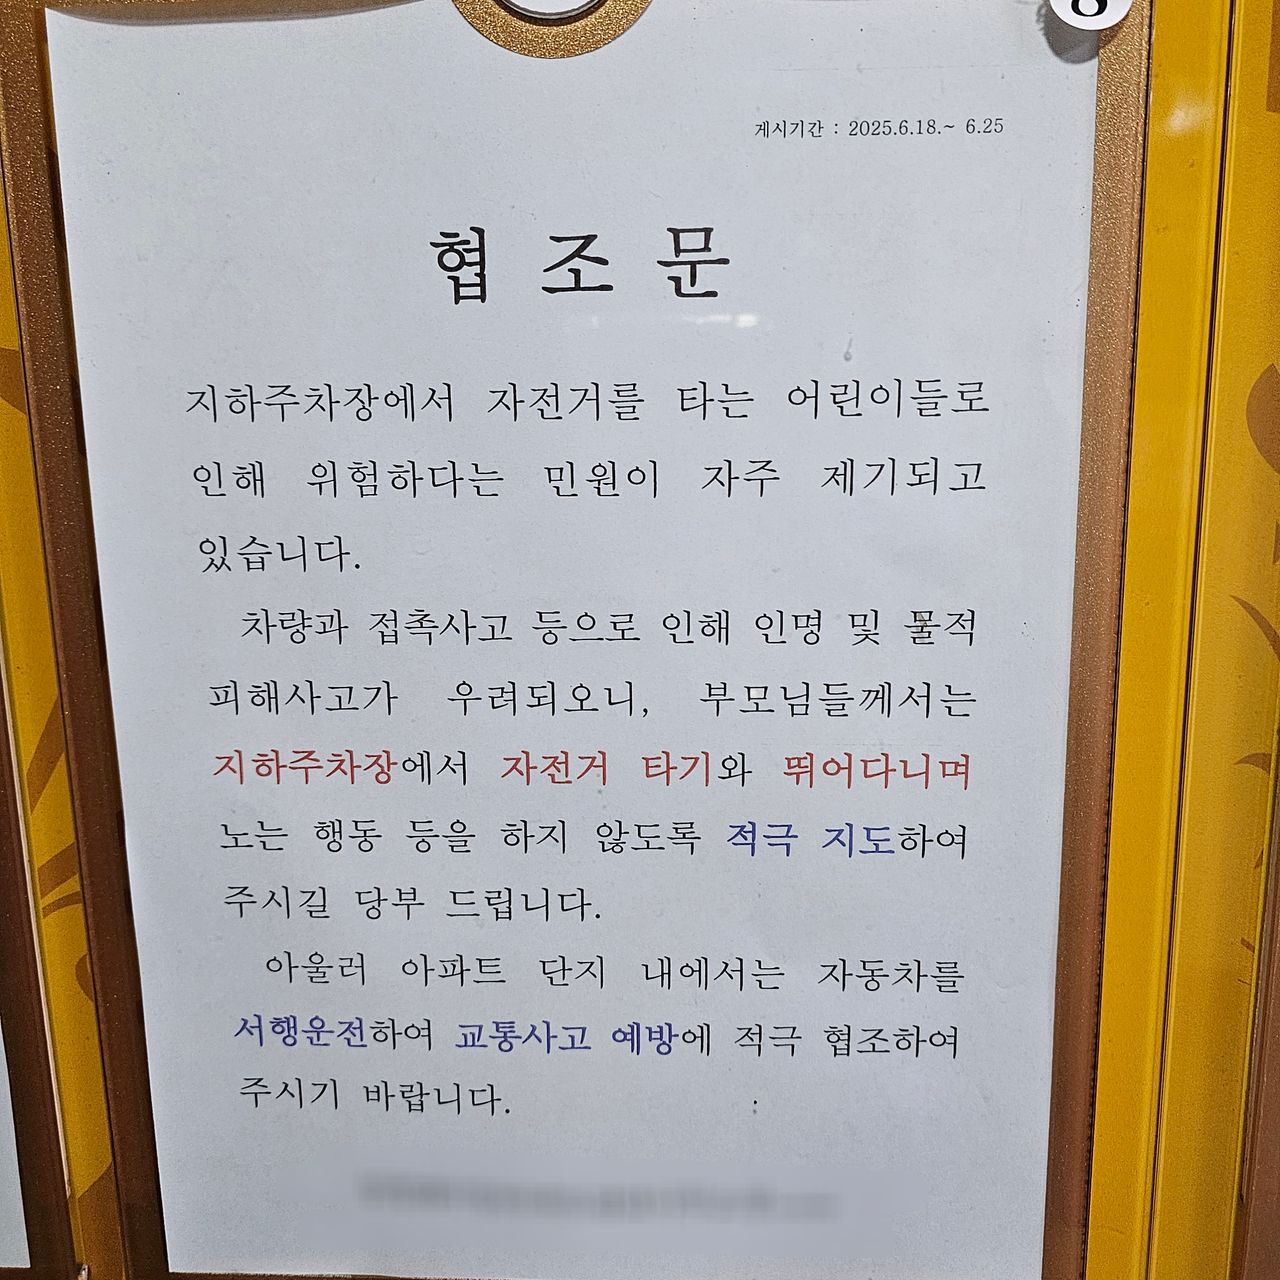 8
게시기간 : 2025.6.18.~ 6.25
협 조 문
지하주차장에서 자전거를 타는 어린이들로
인해 위험하다는 민원이 자주 제기되고
있습니다.
차량과 접촉사고 등으로 인해 인명 및 물적
피해사고가 우려되오니, 부모님들께서는
지하주차장에서 자전거 타기와 뛰어다니며
노는 행동 등을 하지 않도록 적극 지도하여
주시길 당부 드립니다.
아울러 아파트 단지 내에서는 자동차를
서행운전하여 교통사고 예방에 적극 협조하여
주시기 바랍니다.